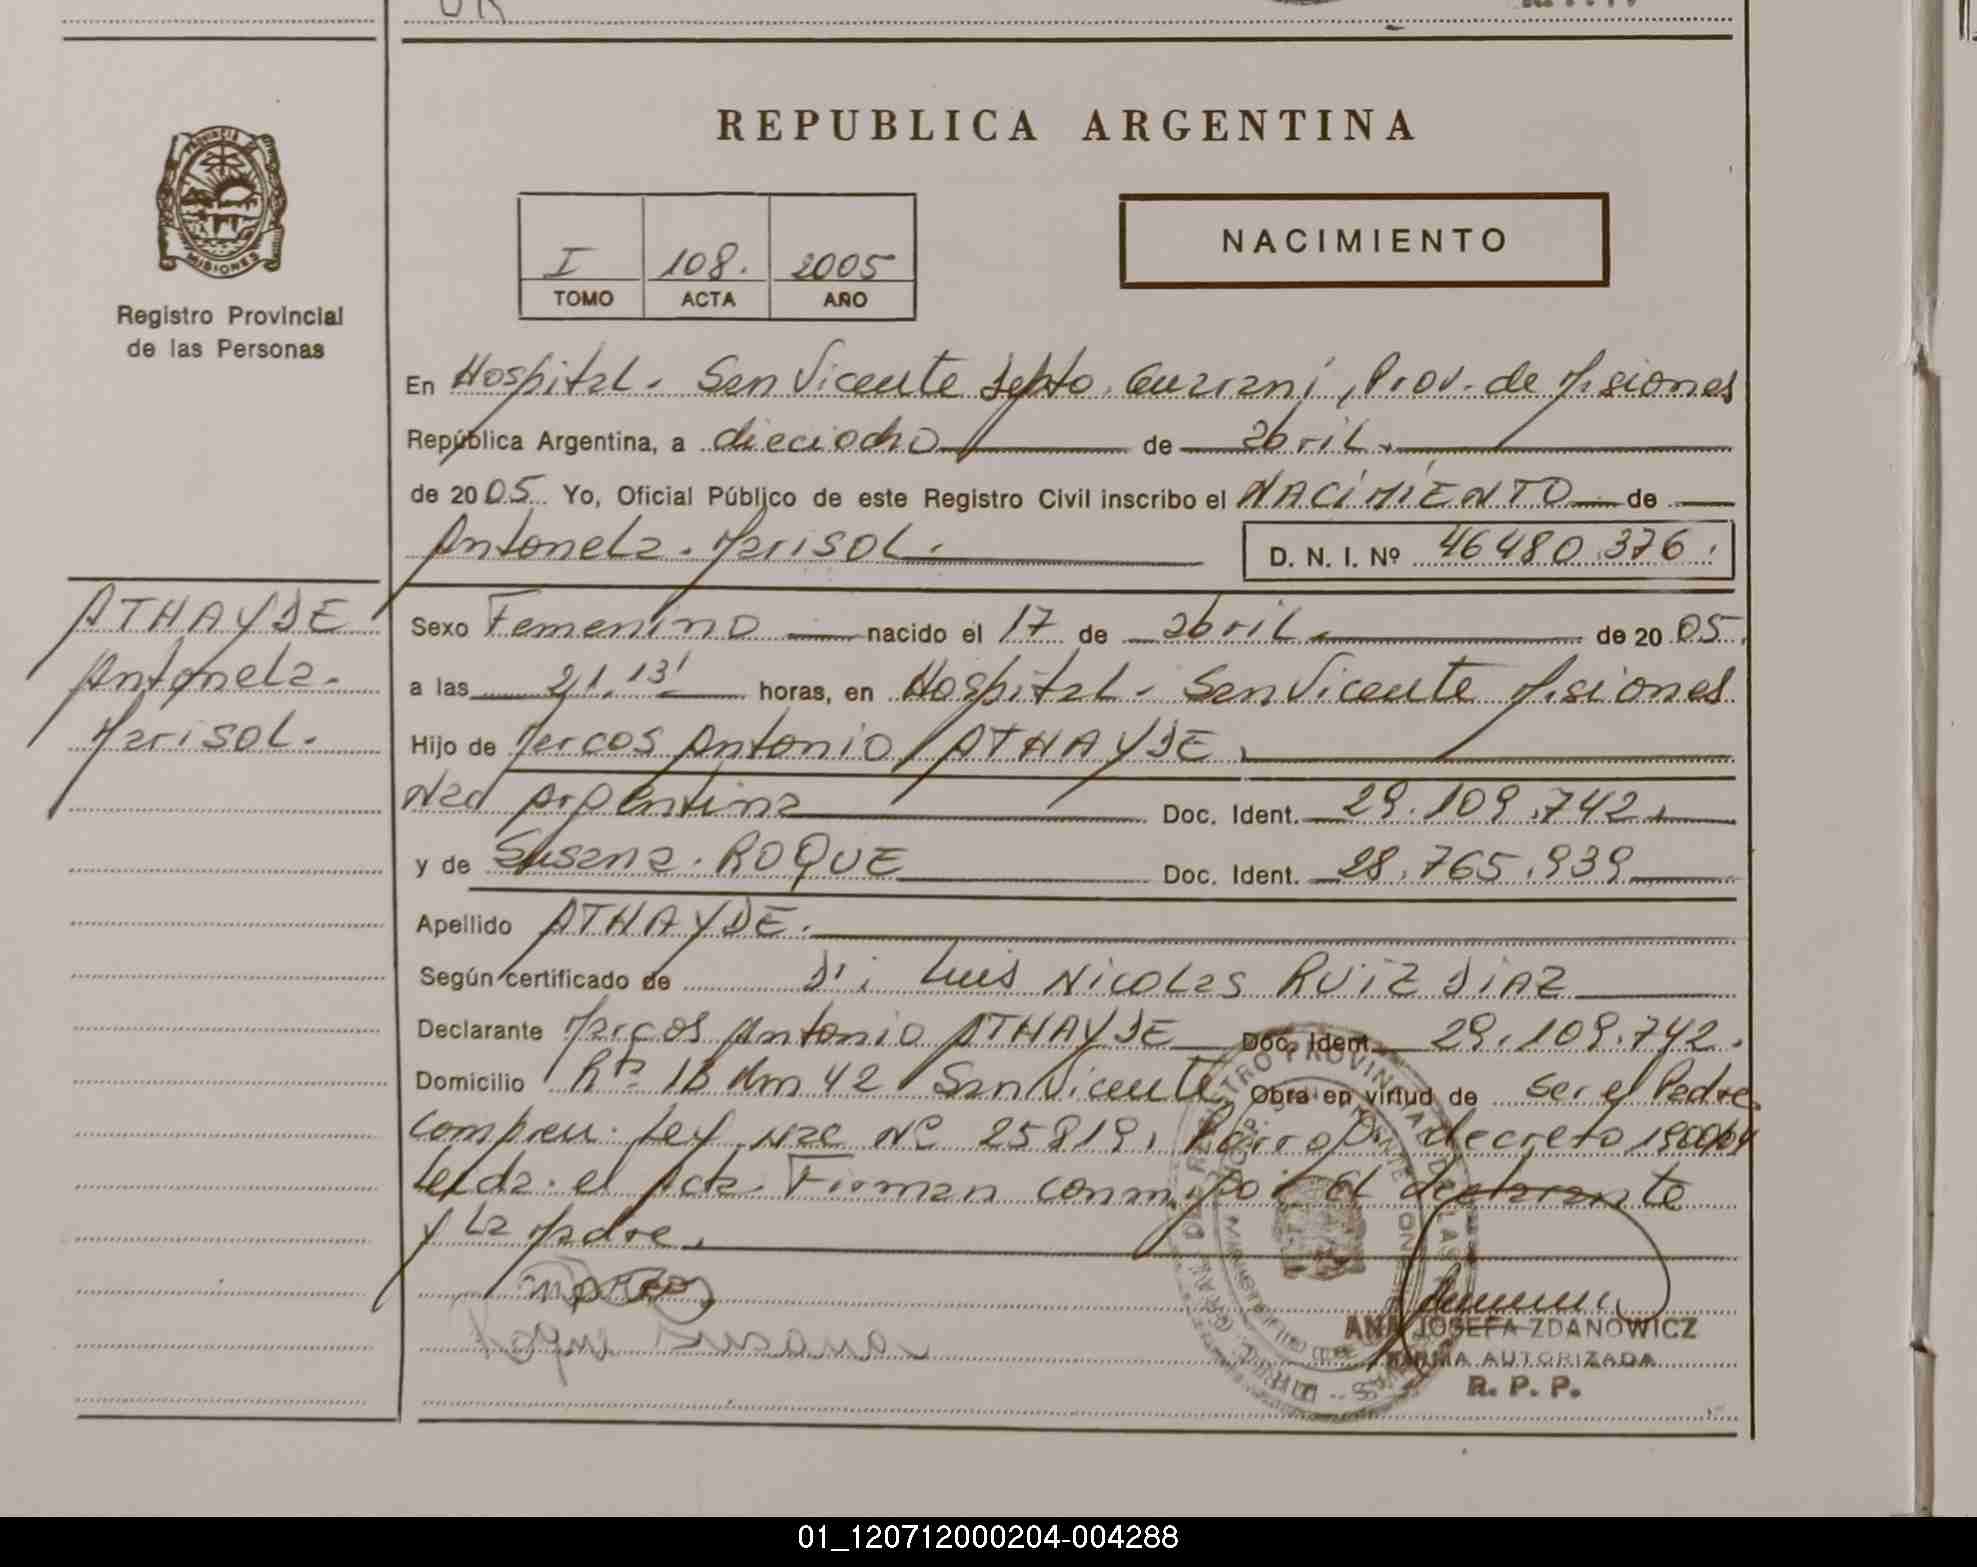 REPUBLICA ARGENTINA
PROVINCIA DE MISIONES
Registro Provincial
de las Personas
I 108. 2005
TOMO ACTA AÑO
NACIMIENTO
En Hospital. San Vicente Depto. Guarani, Prov. de Misiones
República Argentina, a dieciocho de abril.
de 2005. Yo, Oficial Público de este Registro Civil inscribo el NACIMIENTO de
Antonela. Marisol. D. N. I. Nº 46480.376.
ATHAYDE
Antonela.
Marisol.
Sexo Femenino nacido el 17 de abril. de 20 05.
a las 21,13' horas, en Hospital. San Vicente Misiones
Hijo de Marcos Antonio ATHAYDE,
Nac Argentina Doc. Ident. 29.109.742.
y de Susana. ROQUE Doc. Ident. 28.765.939
Apellido ATHAYDE.
Según certificado de Luis Nicolas RUIZ DIAZ
Declarante Marcos Antonio ATHAYDE Doc. Ident. 29.109.742.
Domicilio Rta 13 Km 42 San Vicente Obra en virtud de Ser el Padre
Ley Nac Nº 25819, decreto
Leida el Acta. Firman conmigo el declarante
y La Madre.
Roque Susana
ANA JOSEFA ZDANOWICZ
FIRMA AUTORIZADA
R. P. P.
01_120712000204-004288